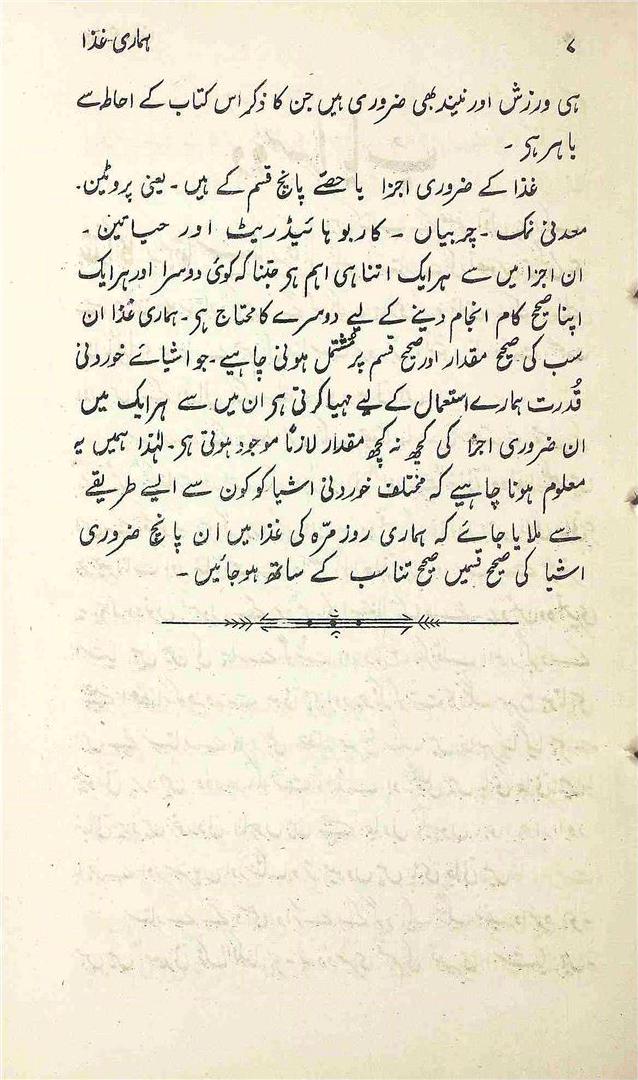 ۸ ہماری غذا
ہی ورزش اور نیند بھی ضروری ہیں جن کا ذکر اس کتاب کے احاطہ سے
باہر ہی ۔
غذا کے ضروری اجزا یا حصّے پانچ قسم کے ہیں ۔ یعنی پروٹین ۔
معدنی نمک ۔ چربیاں ۔ کاربوہائیڈریٹ اور حیاتین ۔
ان اجزا میں سے ہر ایک اتنا ہی اہم ہی جتنا کہ کوئی دوسرا اور ہر ایک
اپنا صحیح کام انجام دینے کے لیے دوسرے کا محتاج ہی ۔ ہماری غذا ان
سب کی صحیح مقدار اور صحیح قسم پر مشتمل ہونی چاہیے ۔ جو اشیائے خوردنی
قُدرت ہمارے استعمال کے لیے مہیا کرتی ہی ان میں سے ہر ایک میں
ان ضروری اجزا کی کچھ نہ کچھ مقدار لازماً موجود ہوتی ہی ۔ لہٰذا ہمیں یہ
معلوم ہونا چاہیے کہ مختلف خوردنی اشیا کو کون سے ایسے طریقے
سے ملایا جائے کہ ہماری روز مرّہ کی غذا میں ان پانچ ضروری
اشیا کی صحیح قسمیں صحیح تناسب کے ساتھ ہو جائیں ۔